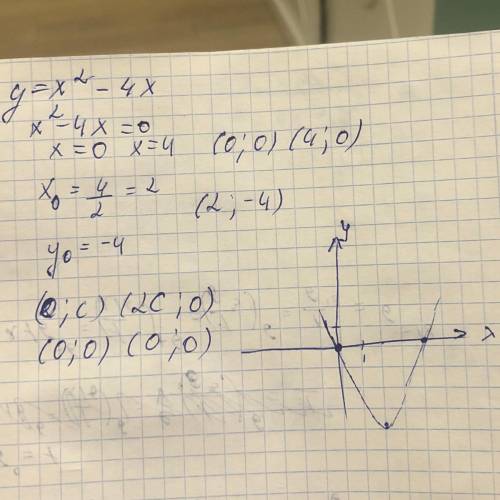 y=x² - 4x
x² - 4x = 0
x=0 x=4 (0;0) (4;0)
x₀ = 4/2 = 2 (2;-4)
y₀ = -4
(0;c) (2c;0)
(0;0) (0;0)
y
x
1